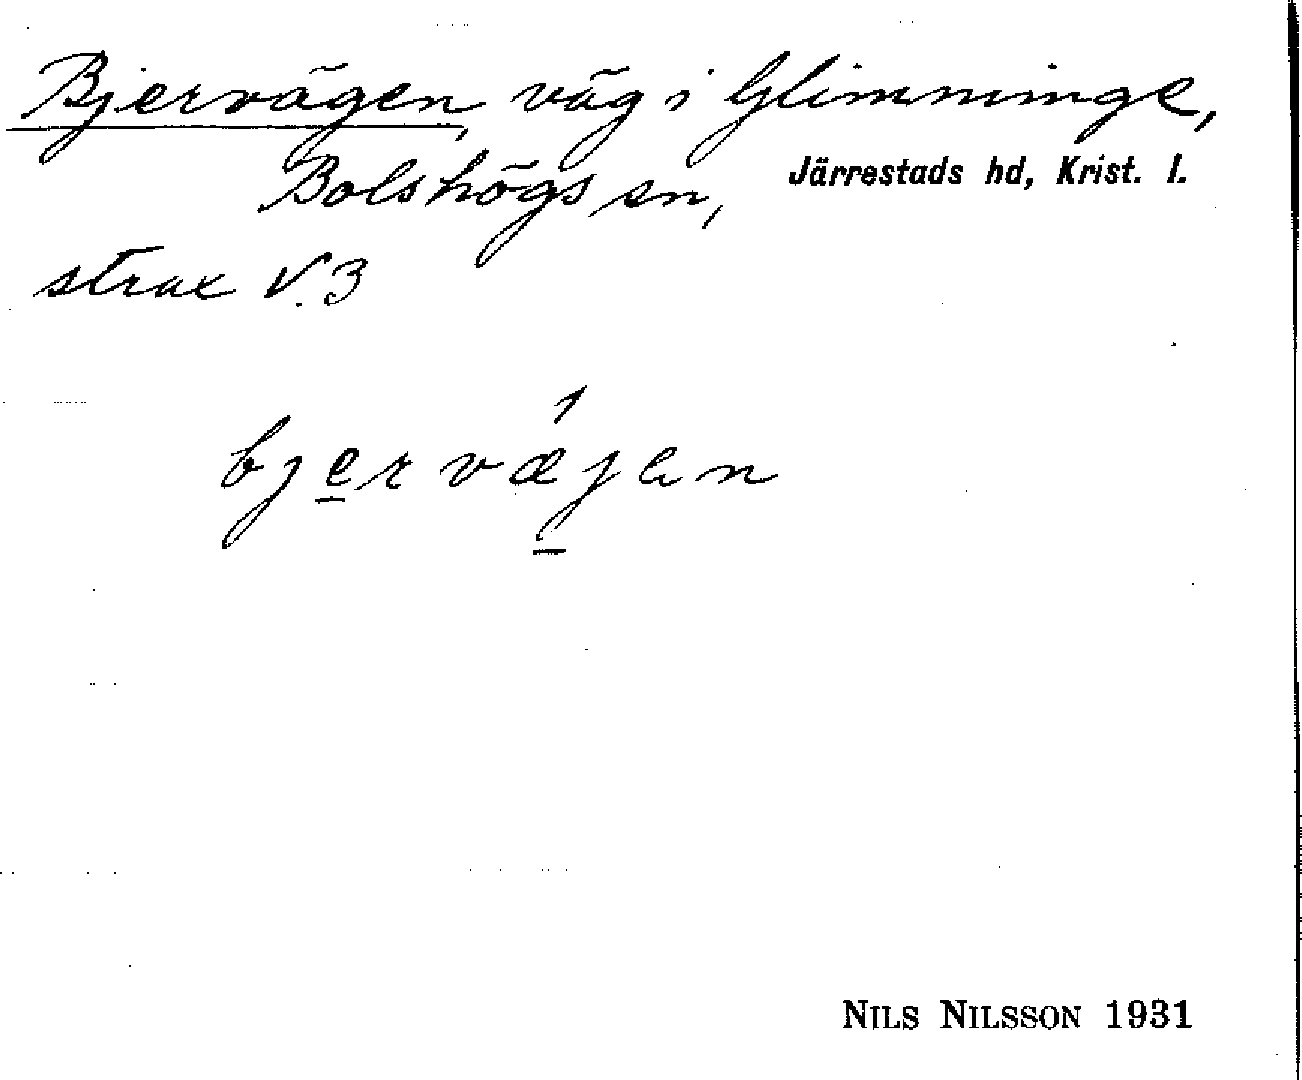 Bjervägen, väg i Glimminge,
Bolshögs sn, Järrestads hd, Krist. l.
strax V. 3
bjervæjen
NILS NILSSON 1931